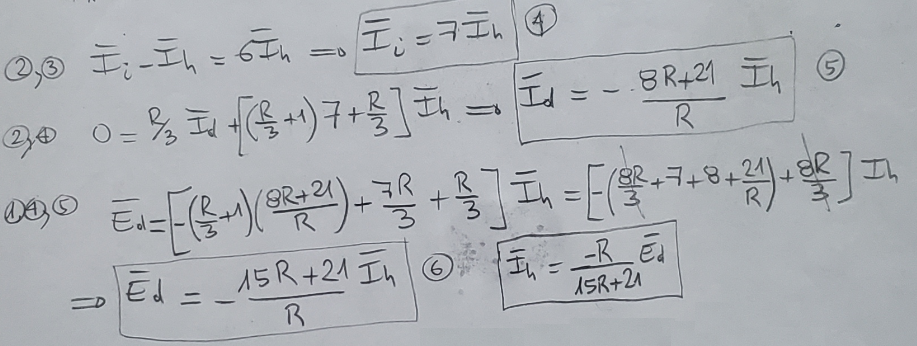 ②,③ Īi - Īh = 6Īh ⇒ Īi = 7Īh ④
②,④ 0 = R/3 Īd + [(R/3 + 1) 7 + R/3] Īh ⇒ Īd = - (8R+21)/R Īh ⑤
①④,⑤ Ēd = [-(R/3 + 1)((8R+21)/R) + 7R/3 + R/3] Īh = [-(8R/3 + 7 + 8 + 21/R) + 8R/3] Ih
⇒ Ēd = - (15R+21)/R Īh ⑥ Īh = -R/(15R+21) Ēd